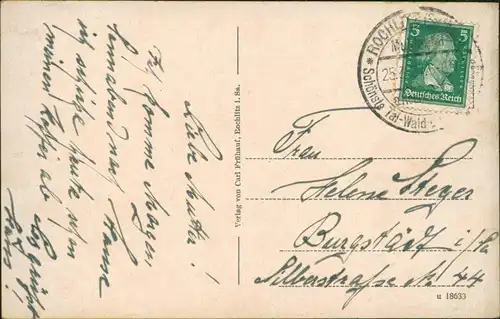 Liebe Mutter!
Ich komme Morgen
Sonnabend nach Hause
ich schicke heute schon
meinen Koffer ab
Es grüßt
Hans!
Verlag von Carl Frühauf, Rochlitz i. Sa.
ROCHLITZ
25.
Schloß
Tal-Wald
5 5
Deutsches Reich
Frau
Helene Steger
Burgstädt i/Sa
Silberstrasse Nr. 44
u 18633